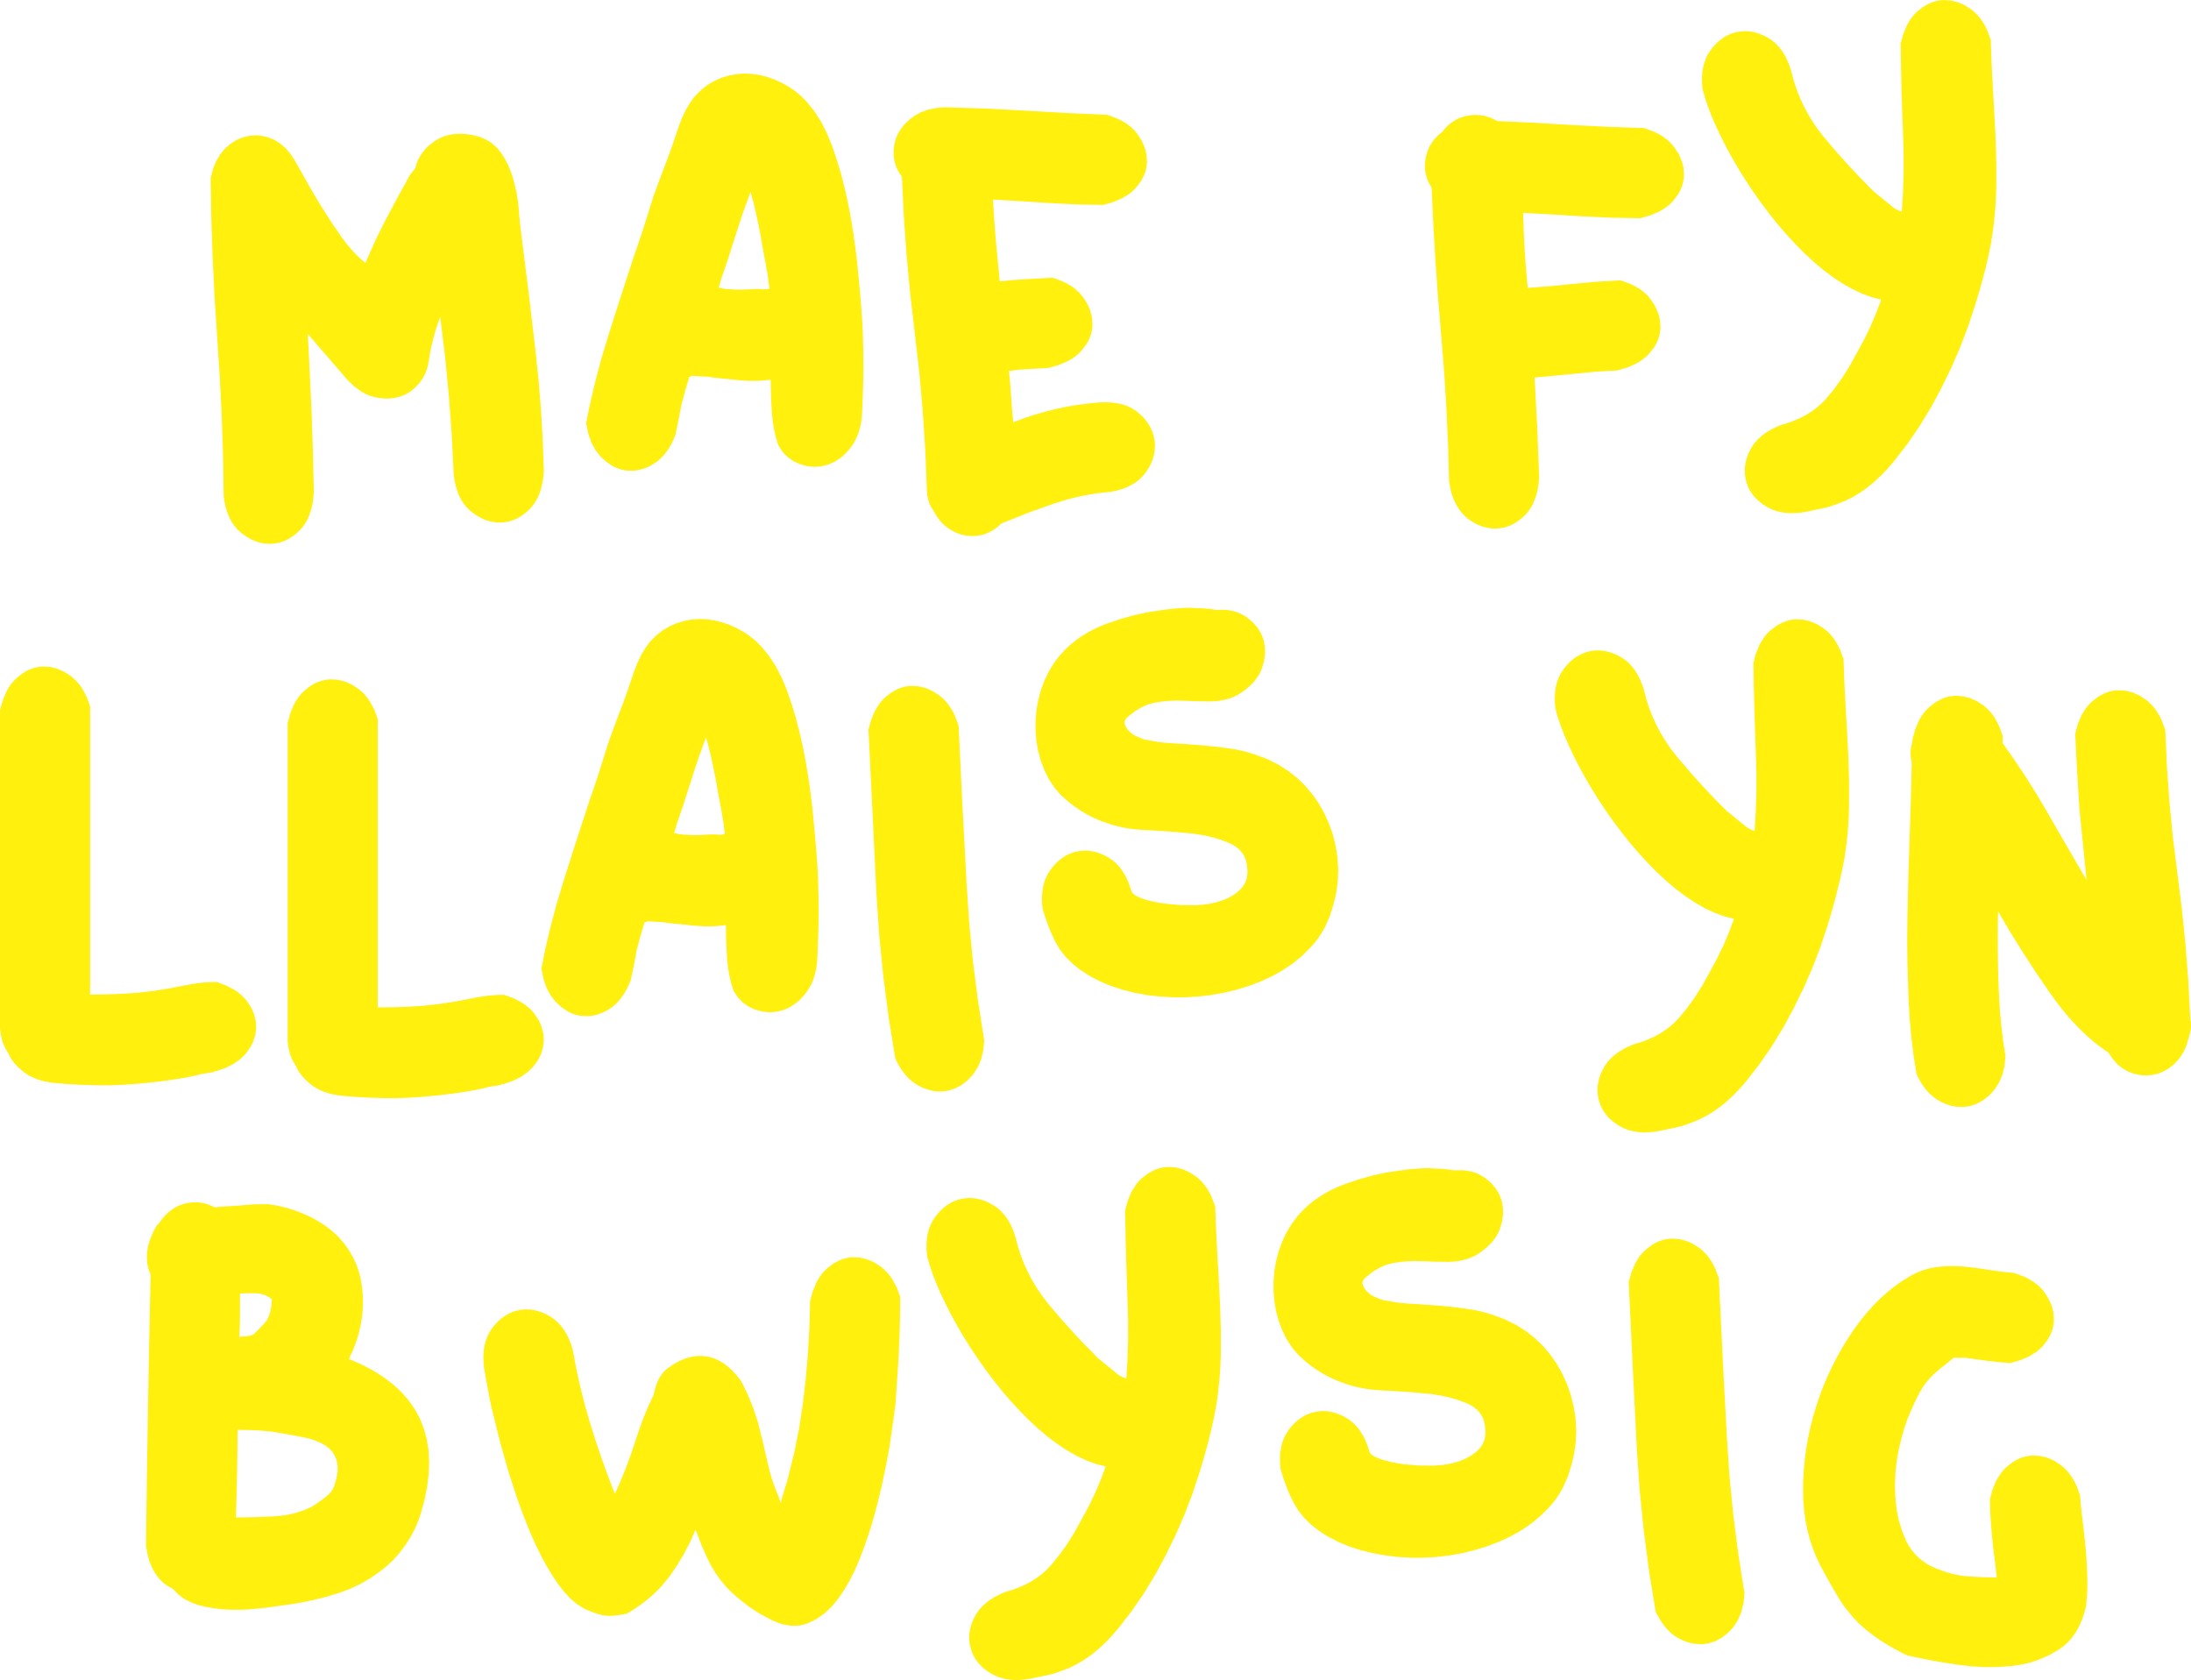 MAE FY
LLAIS YN
BWYSIG